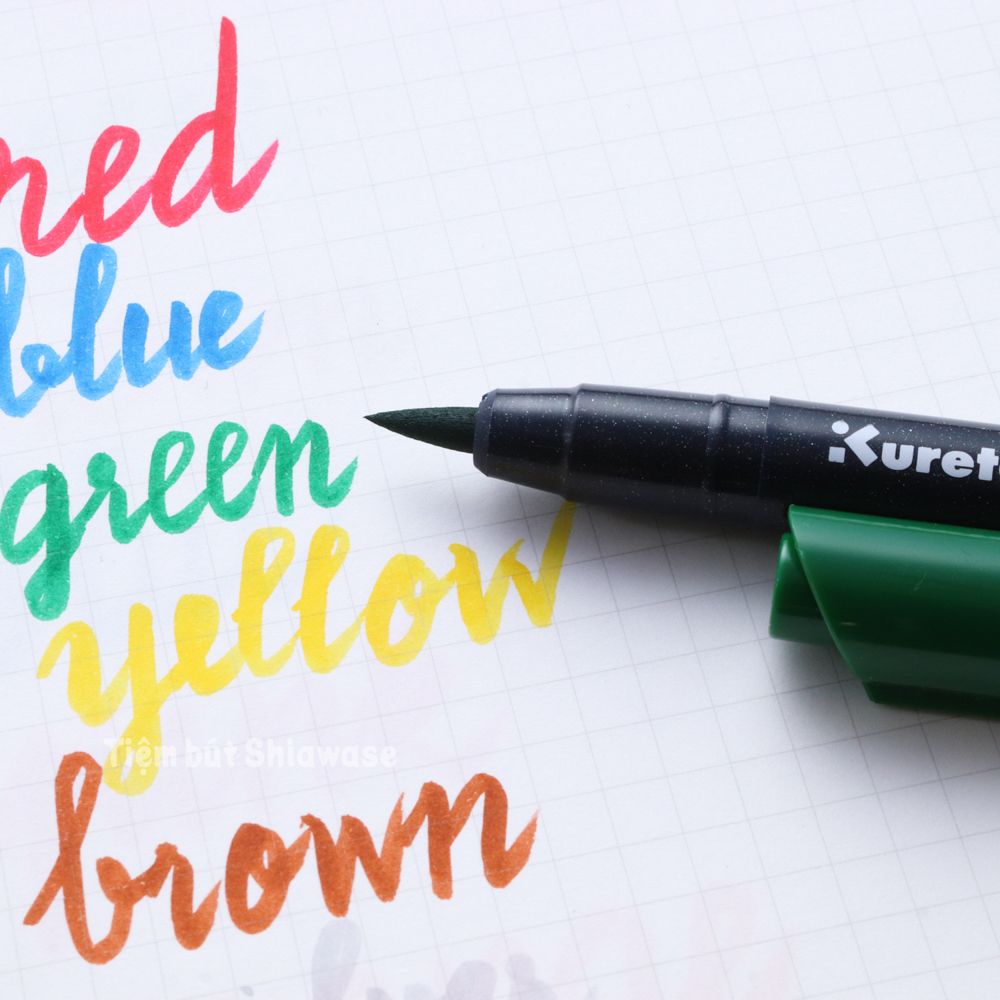 red
blue
green
Kuret
yellow
Tiệm bút Shiawase
brown